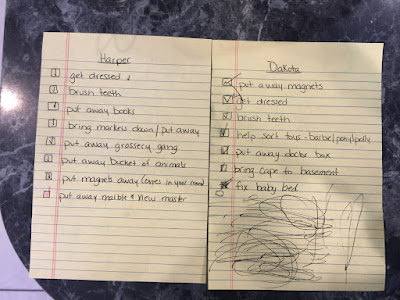 Harper
get dressed
brush teeth
put away books
bring markers down/put away
put away grossery gang
put away bucket of animals
put magnets away (ones in your room)
put away marble & new master
Dakota
put away magnets
get dressed
brush teeth
help sort toys - barbie/pony/polly
put away doctor box
bring cape to basement
fix baby bed